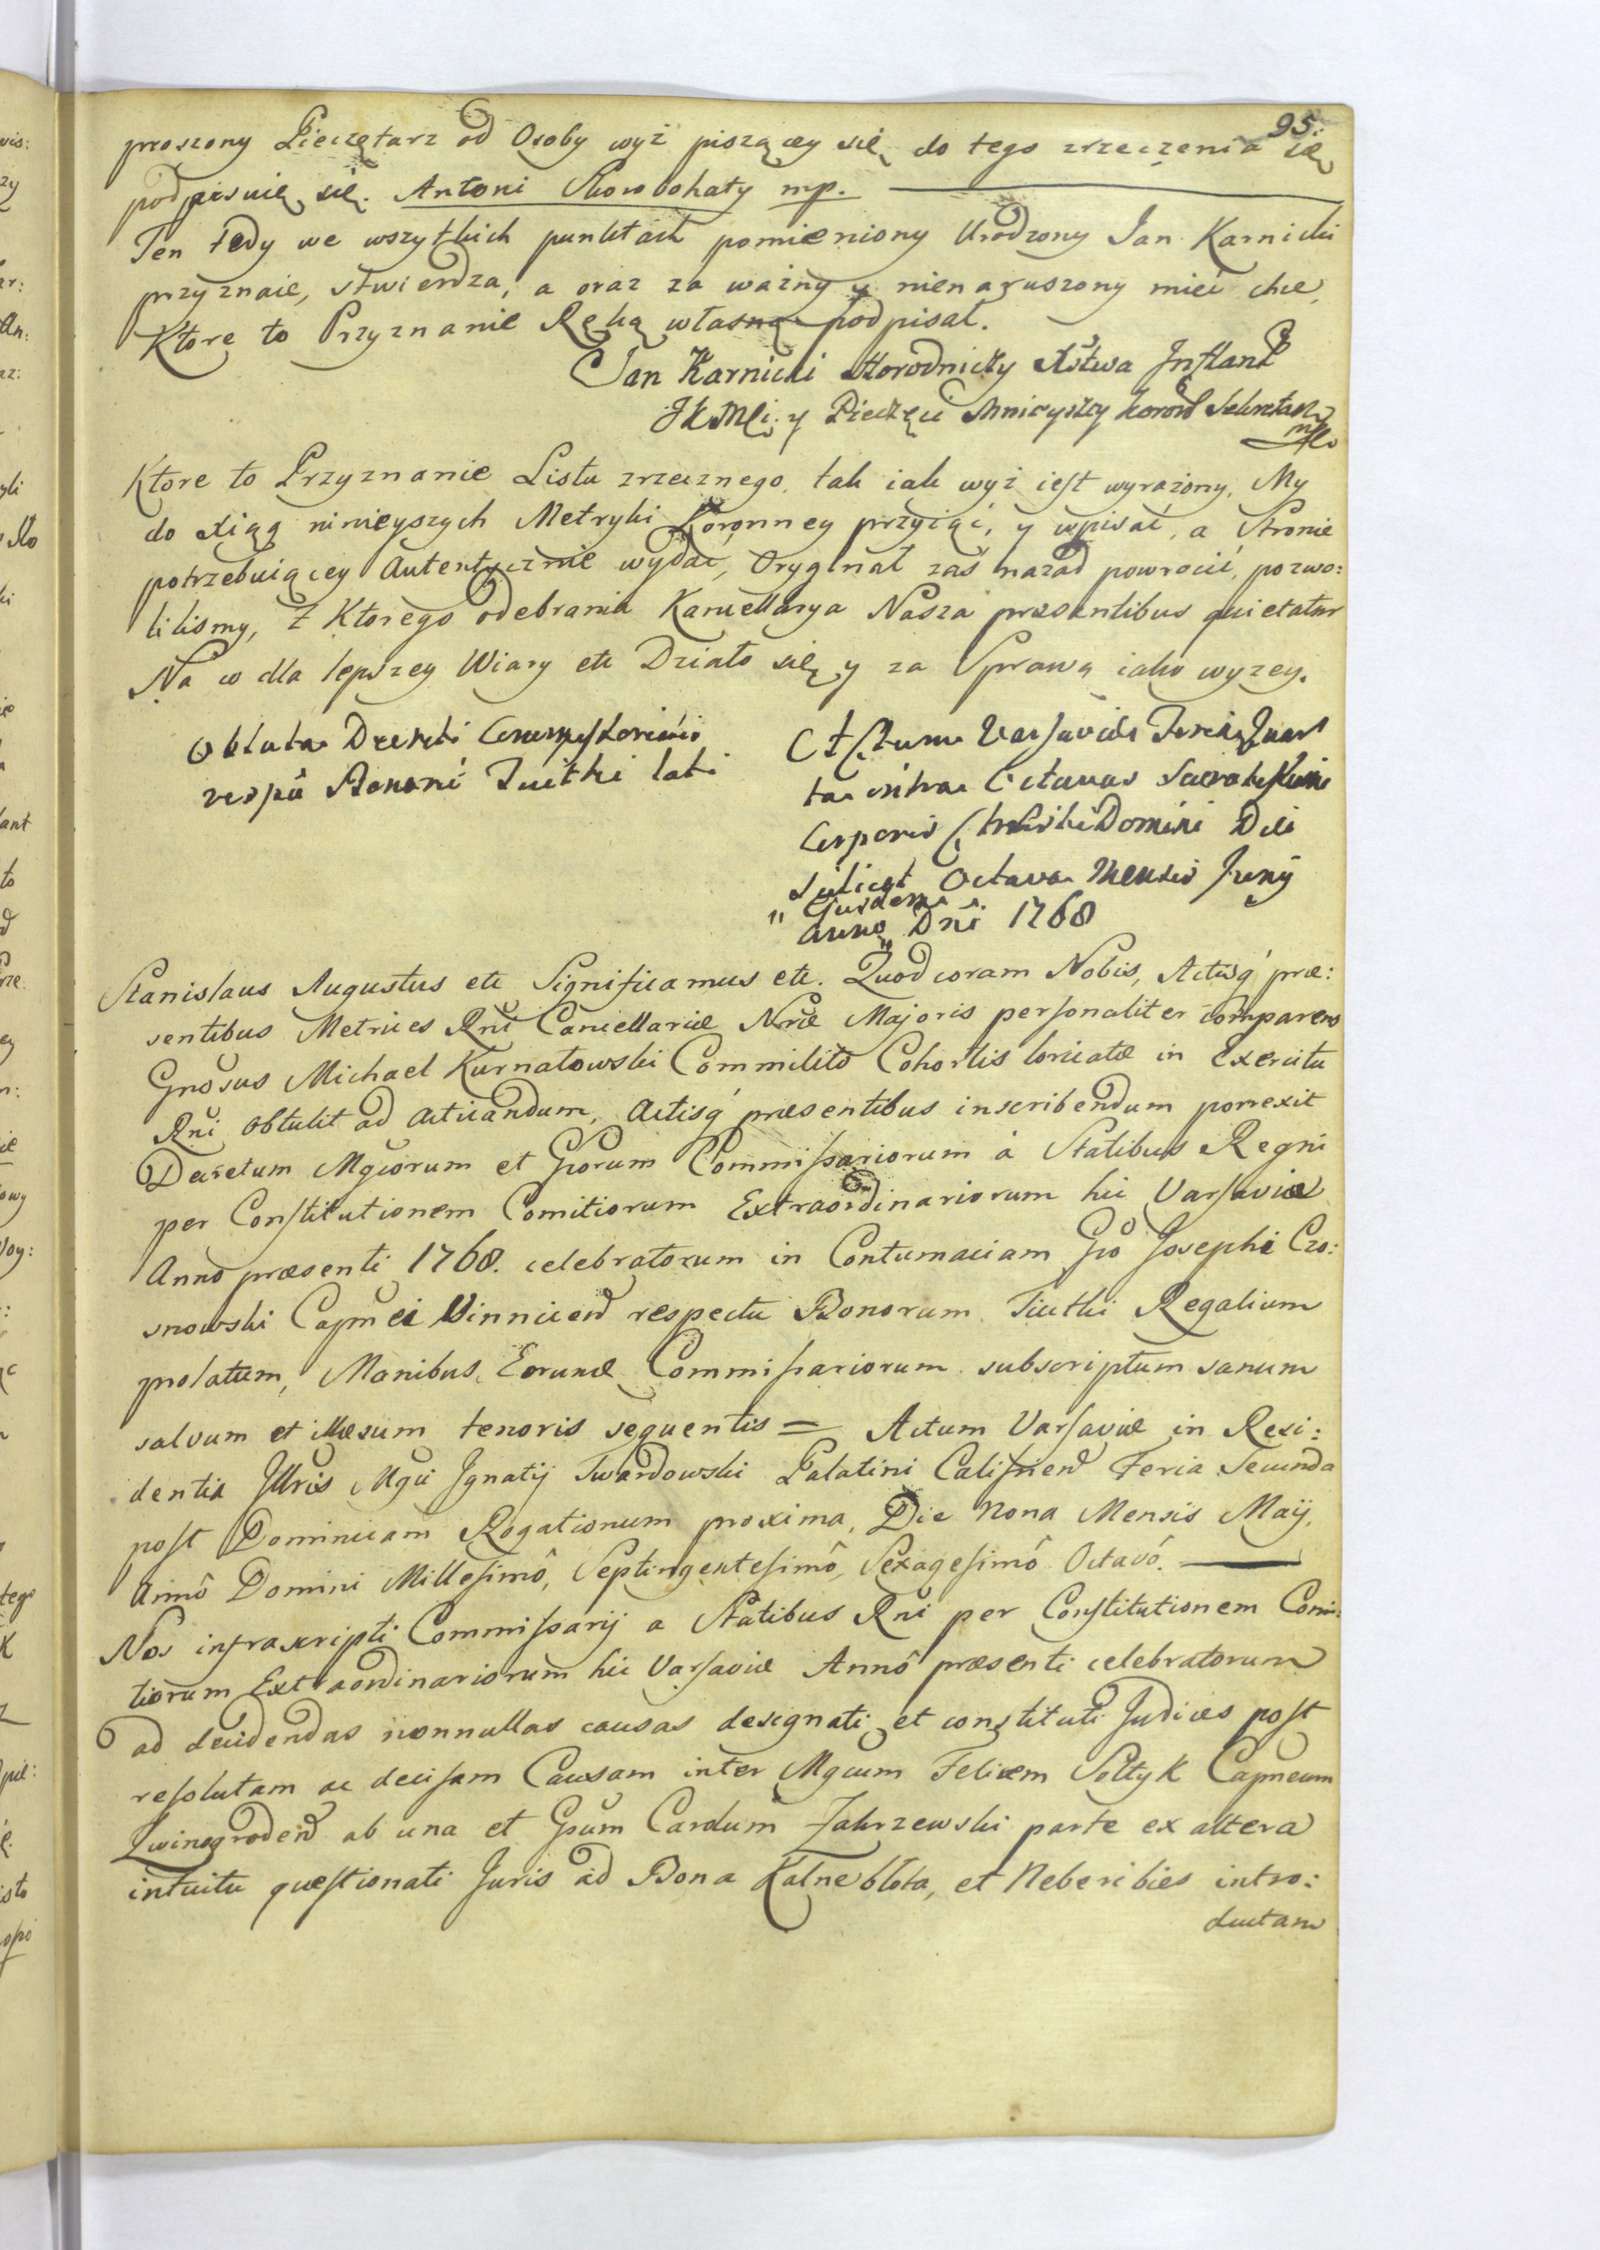 95.
proszony Pieczętarz od Osoby wyż piszącey się do tego zrzeczenia się
podpisuię się. Antoni Skowbohaty mp.
Ten tedy we wszytkich punktach pomieniony Urodzony Jan Karnicki
przyznaie, stwierdza, a oraz za ważny y nienaruszony mieć chce,
Ktore to Przyznanie Ręką własną podpisał.
Jan Karnicki Horodniczy Xstwa Inflant
JKMci y Pieczęci Mnieyszey koron Sekretarz
mp
Ktore to Przyznanie Listu zrzecznego, tak iak wyż iest wyrażony, My
do xiąg ninieyszych Metryki Koronney przyiąć, y wpisać, a Stronie
potrzebuiącey Autentycznie wydać, Oryginał zaś nazad powrocić, pozwo:
liliśmy, z Ktorego odebrania Kancellarya Nasza præsentibus quietatur
Na co dla lepszey Wiary etc Działo się y za Sprawą iako wyzey.
Oblata Decreti Compustorialis
respû Bonorû Tuitki lati
Actum Varsaviæ Feria Quar
ta intra Octavas Sacratissimi
Corporis Christi Domini Die
scilicet Octava Mensis Junÿ
" Ejusdem
anno " Dni 1768
Stanislaus Augustus etc Significamus etc. Quod coram Nobis, Actisq præ:
sentibus Metrices Rni Cancellariæ Nræ Majoris personaliter comparens
Gnosus Michael Kurnatowski Commilito Cohortis loricatæ in Exercitu
Rni obtulit ad acticandum, Actisq præsentibus inscribendum porrexit
Decretum Mgcorum et Gsorum Commissariorum á Statibus Regni
per Constitutionem Comitiorum Extraordinariorum hic Varsaviæ
Anno præsenti 1768. celebratorum in Contumaciam Gso Josephi Czo:
snowski Capnei Vinnicen respectu Bonorum Tiutki Regalium
prolatum, Manibus, Eorund Commissariorum subscriptum sanum
salvum et illæsum tenoris sequentis = Actum Varsaviæ in Resi:
dentia Illris Mgci Ignatij Twardowski Palatini Calissien Feria Secunda
post Dominicam Rogationum proxima, Die Nona Mensis Maij,
Annô Domini Millesimô, Septingentesimô, Sexagesimô Octavó.
Nos infrascripti Commissarij a Statibus Rni per Constitutionem Comi:
tiorum Extraordinariorum hic Varsaviæ Annô præsenti celebratorum
ad decidendas nonnullas causas designati et constituti Judices post
resolutam ac decisam Causam inter Mgcum Felicem Sołtyk Capneum
Zwinogroden ab una et Gsum Carolum Zakrzewski parte ex altera
intuitu quæstionati Juris ad Bona Kalnebłota, et Neberibies intro:
ductam